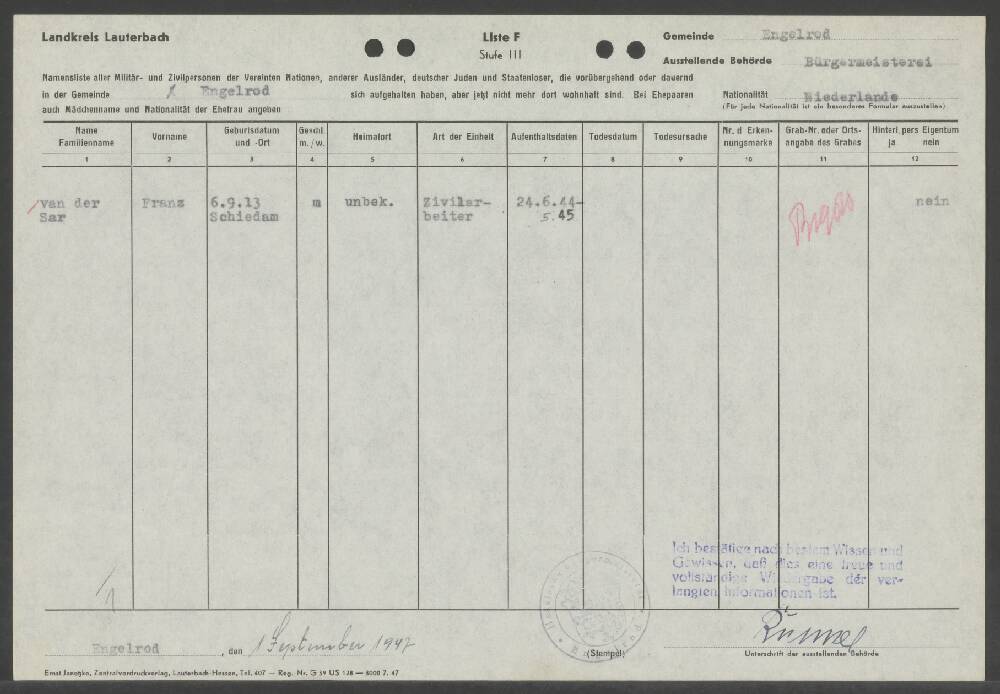 Landkreis Lauterbach
Liste F
Stufe III
Gemeinde Engelrod
Ausstellende Behörde Bürgermeisterei
Namensliste aller Militär- und Zivilpersonen der Vereinten Nationen, anderer Ausländer, deutscher Juden und Staatenloser, die vorübergehend oder dauernd
in der Gemeinde Engelrod sich aufgehalten haben, aber jetzt nicht mehr dort wohnhaft sind. Bei Ehepaaren
auch Mädchenname und Nationalität der Ehefrau angeben
Nationalität Niederlande
(Für jede Nationalität ist ein besonderes Formular auszustellen)
Name Familienname Vorname Geburtsdatum und -Ort Geschl. m./w. Heimatort Art der Einheit Aufenthaltsdaten Todesdatum Todesursache Nr. d. Erkennungsmarke Grab-Nr. oder Ortsangabe des Grabes Hinterl. pers. Eigentum ja nein
1 2 3 4 5 6 7 8 9 10 11 12
van der Franz 6.9.13 m unbek. Zivilar- 24.6.44- nein
Sar Schiedam beiter 5.45
Ich bestätige nach bestem Wissen und
Gewissen, daß dies eine treue und
vollständige Wiedergabe der ver-
langten Informationen ist.
1
Engelrod, den 1 September 1947
(Stempel)
Rümmel
Unterschrift der ausstellenden Behörde
Ernst Jaesgko, Zentralvordruckverlag, Lauterbach-Hessen, Tel. 407 — Reg. Nr. G 59 US 128 — 8000 7. 47